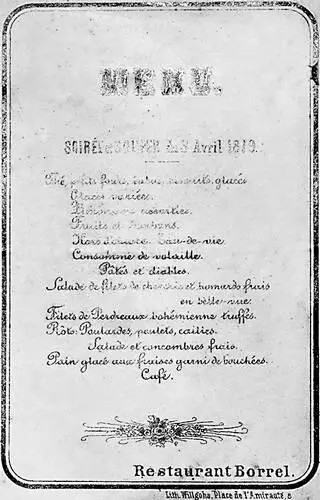 MENU.
SOIRÉE et SOUPER du 3 Avril 1879.
Thé, petits fours, glacés
Glaces variées.
assorties.
Fruits et
Hors d'œuvre. Eau-de-vie.
Consommé de volaille.
Pâtés et diables.
Salade de filets de et homards frais
en belle-vue.
Filets de Perdreaux bohémienne truffés.
Rôts: Poulardes, poulets, cailles.
Salade et concombres frais.
Pain glacé aux fraises garni de bouchées.
Café.
Restaurant Borrel.
Lith. Willgohs, Place de l'Amirauté, 6.